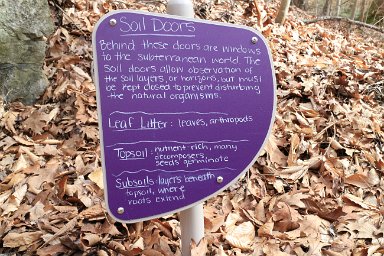 Soil Doors
Behind these doors are windows
to the subterranean world. The
soil doors allow observation of
the soil layers, or horizons, but must
be kept closed to prevent disturbing
the natural organisms.
Leaf Litter: leaves, arthropods
Topsoil: nutrient rich, many
decomposers,
seeds germinate
Subsoils: layers beneath
topsoil, where
roots extend